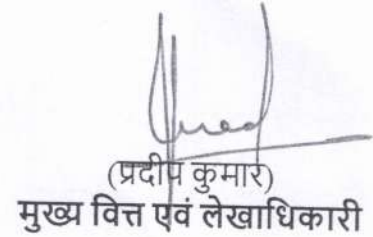 (प्रदीप कुमार)
मुख्य वित्त एवं लेखाधिकारी